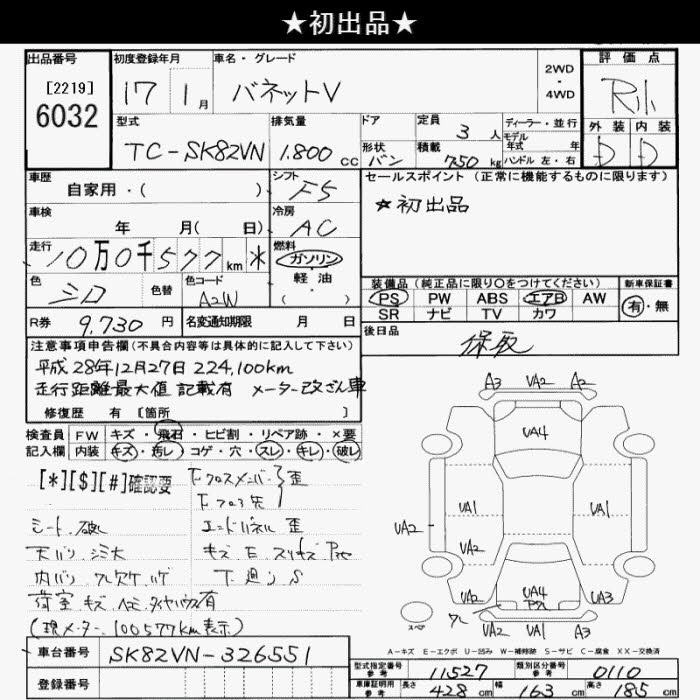 ★初出品★
出品番号 [2219] 6032
初度登録年月 17 1月
車名・グレード バネットV
2WD・4WD
評価点 R小
外装 D 内装 D
型式 TC-SK82VN
排気量 1.800cc
ドア
形状 バン
定員 3人
積載 750kg
ディーラー・並行
モデル年式 年
ハンドル 左・右
車歴 自家用・( )
シフト F5
セールスポイント(正常に機能するものに限ります)
★初出品
車検 年 月( 日)
冷房 AC
走行 10万0千577km *
燃料 ガソリン・軽油・( )
色 シロ 色替
色コード A2W
装備品(純正品に限り○をつけてください)
PS PW ABS エアB AW
SR ナビ TV カワ
新車保証書 有・無
R券 9,730円
名変通知期限 月 日
後日品 保取
注意事項申告欄(不具合内容等は具体的に記入して下さい)
平成28年12月27日 224,100km
走行距離最大値 記載有 メーター改ざん車
修復歴 有 [箇所 ]
検査員記入欄
FW キズ・飛石・ヒビ割・リペア跡・×要
内装 キズ・汚レ・コゲ・穴・スレ・キレ・破レ
[*][$][#]確認要
Fクロスメンバー 歪
Fフロア先
シート 破レ
エンドパネル 歪
天バリ シミ大
キズ E スリキズ
内バリ ワレ欠ケ ハゲ
下廻り S
荷室 キズ ヘコミ タイヤハウス有
(現メーター 100577km表示)
A3 VA2 A2
UA4
UA1 UA1
UA2
UA2
UA2 UA4 UA3
ワレ
スペア
UA2 UA1 A3
A-キズ E-エクボ U-凹み W-補修跡 S-サビ C-腐食 XX-交換済
車台番号 SK82VN-326551
登録番号
型式指定番号参考 11527
類別区分番号参考 0110
車庫証明用参考 長さ 428cm 幅 163cm 高さ 185cm